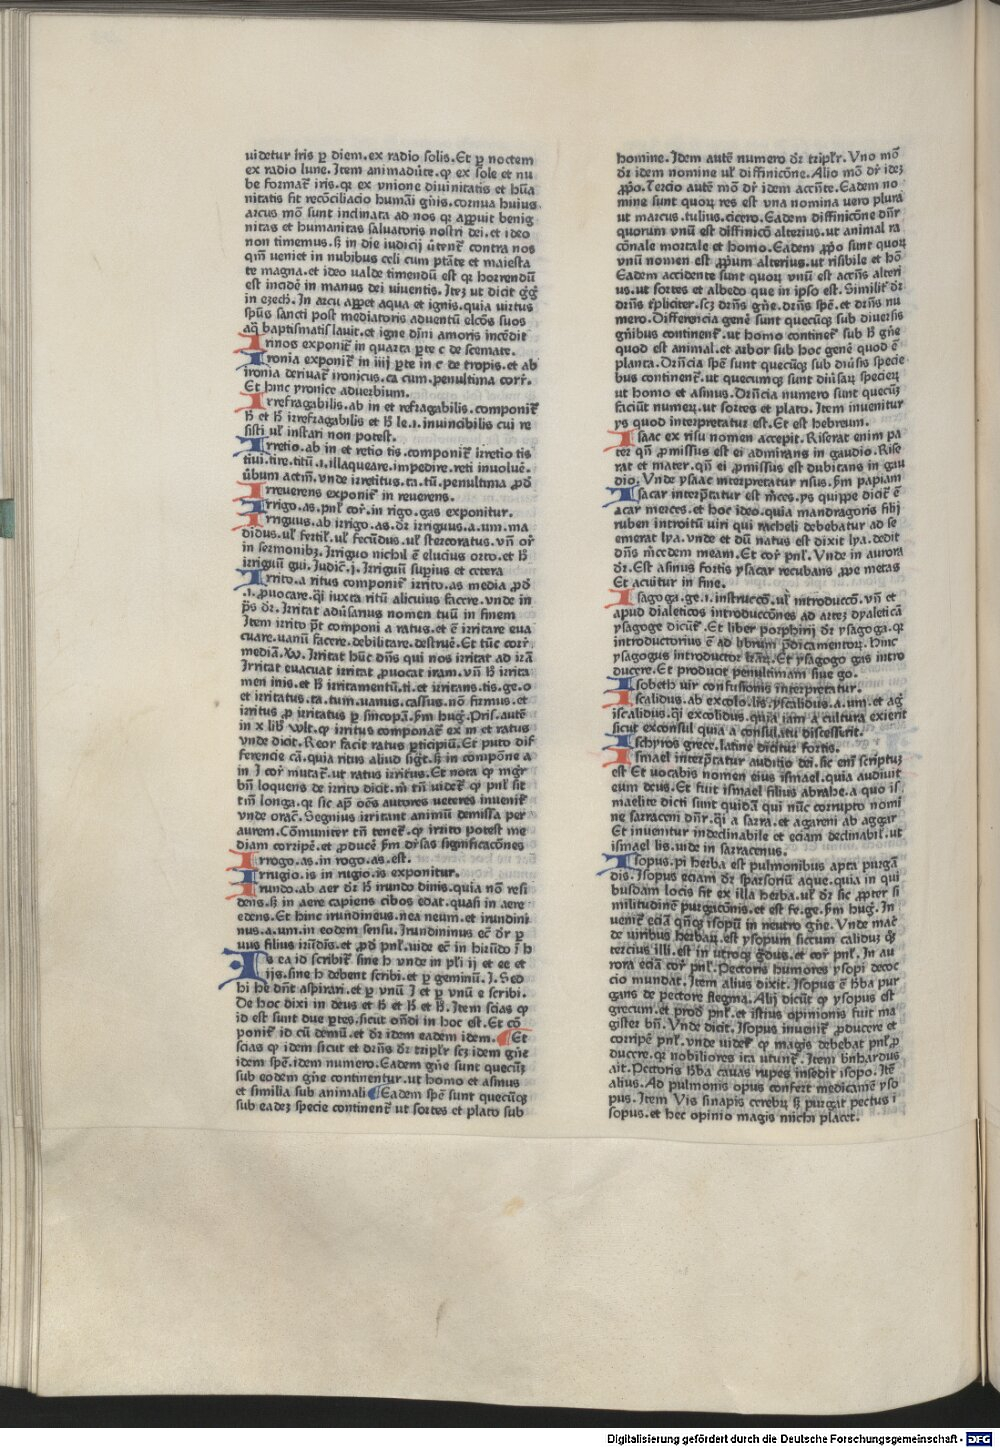 uidetur iris ꝑ diem.ex radio solis.Et ꝑ noctem
ex radio lune.Item animadũte.ꝙ ex sole et nu
be format᷑ iris.qꝛ ex vnione diuinitatis et hũa
nitatis fit recõciliacio humãi gñis.cornua huius
arcus mõ sunt inclinata ad nos qꝛ aꝑpuit benig
nitas et humanitas saluatoris nostri dei.et ideo
non timemus.ſꝫ in die iudicij ũtent᷑ contra nos
qm̃ veniet in nubibus celi cum ptãte et maiesta
te magna.et ideo ualde timendũ est qꝛ horrendũ
est incidẽ in manus dei viuentis.Iteꝫ ut dicit g̃g̃
in ezech̃.In arcu aꝑpet aqua et ignis.quia virtus
ſpũs sancti post mediatoris aduentũ elc̃os suos
aq̃ baptismatis lauit.et igne diuini amoris incẽdit
Irinos exponit᷑ in quarta ꝑte c de scemate.
Ironia exponit᷑ in iiij ꝑte in c de tropis.et ab
ironia deriuat᷑ ironicus.ca cum.penultima cor᷑.
Et hinc yronice aduerbium.
Irrefragabilis.ab in et refragabilis.componit᷑
h̃ et h̃ irrefragabilis et h̃ le.i.inuincibilis cui re
sisti uł instari non potest.
Irretio.ab in et retio tis.componit᷑ irretio tis
tiui.tire.titũ.i.illaqueare.impedire.reti inuoluẽ.
ũbum actm̃.vnde irretitus.ta.tũ.penultima ꝓd᷑
Irreuerens exponit᷑ in reuerens.
Irrigo.as.pnł cor᷑.in rigo.gas exponitur.
Irriguus.ab irrigo.as.dr̃ irriguus.a.um.ma
didus.uł fertil᷑.uł fecũdus.uł stercoratus.vñ or᷑
in sermonibꝫ.Irriguo nichil ẽ elucius orto.et h̃
irriguũ gui.Iudic̃.j.Irriguũ suꝑius et cetera
Irrito.a ritus componit᷑ irrito.as media ꝓd᷑
.i.ꝓuocare.q̃i iuxta ritũ alicuius facere.vnde in
p̃s dr̃.Irritat adũsarius nomen tuũ in finem
Item irrito p̃t componi a ratus.et ẽ irritare eua
cuare.uanũ facere.debilitare.destruẽ.Et tũc cor᷑
mediã.Irritat hũc dñs qui nos irritat ad irã
Irritat euacuat irritat ꝓuocat iram.vñ h̃ irrita
men inis.et h̃ irritamentũ.ti.et irritans.tis.ge.o
et irritatus.ta.tum.uanus.cassus.nõ firmus.et
irritus ꝓ irritatus ꝑ sincopã.ẜm hug̃.Pris.autẽ
in x lib᷑ vłt.ꝙ irritus componat᷑ ex in et ratus
vnde dicit.Reor facit ratus ꝑticipiũ.Et puto dif
ferencie cã.quia ritus aliud sig̃t.ſꝫ in compõne a
in I cor᷑ mutat᷑.ut ratus irritus.Et nota ꝙ mg̃r
bñ loquens de irrito dicit.m̃ tñ uidet᷑ ꝙ pnł sit
tm̃ longa.qꝛ sic ap᷑ oẽs autores ueteres inuenit᷑
vnde orac̃.Segnius irritant animũ demissa per
aurem.Cõmuniter tñ tenet᷑.ꝙ irrito potest me
diam corriꝑẽ.et ꝓducẽ ẜm dr̃sas significacõnes
Irrogo.as.in rogo.as.est.
Irrugio.is in rugio.is exponitur.
Irundo.ab aer dr̃ h̃ irundo dinis.quia nõ resi
dens.ſꝫ in aere capiens cibos edat.quasi in aere
edens.Et hinc irundineus.nea neum.et irundini
nus.a.um.in eodem sensu.Irundininus ec̃ dr̃ ꝑ
uus filius irũdis.et ꝓd᷑ pnł.uide ec̃ in hirũdo i h̃
Is ea id scribit᷑ sine h vnde in płi ij et ee et
ijs.sine h debent scribi.et ꝑ geminũ.I.Sed
hi he dñt aspirari.et ꝑ vnũ I et ꝑ vnũ e scribi.
De hoc dixi in deus et h̃ et h̃ et h̃.Item scias ꝙ
id est sunt due ꝑtes.sicut oñdi in hoc est.Et cõ
ponit᷑ id cũ demũ.et dr̃ idem eadem idem.Et
scias ꝙ idem sicut et drñs dr̃ triplr̃ scꝫ idem gñe
idem spẽ.idem numero.Eadem gñe sunt quecũqꝫ
sub eodem gñe continentur.ut homo et asinus
et similia sub animali Eadem spẽ sunt quecũqꝫ
sub eadeꝫ specie continent᷑ ut sortes et plato sub
homine.Idem autẽ numero dr̃ triplr̃.Vno mõ
dr̃ idem nomine uł diffinicõne.Alio mõ dr̃ ideꝫ
ꝓpo.Tercio autẽ mõ dr̃ idem accñte.Eadem no
mine sunt quoꝝ res est vna nomina uero plura
ut marcus.tulius.cicero.Eadem diffinicõne dñr
quorum vnũ est diffinicõ alterius.ut animal ra
cõnale mortale et homo.Eadem ꝓpo sunt quoꝝ
vnũ nomen est ꝓpum alterius.ut risibile et hõ
Eadem accidente sunt quoꝝ vnũ est accñs alteri
us.ut sortes et albedo que in ipso est.Similit᷑ dr̃
drñs tr̃pliciter.scꝫ drñs gñe.drñs spẽ.et drñs nu
mero.Differencia genẽ sunt quecũqꝫ sub diuersis
gñibus continent᷑.ut homo continet᷑ sub h̃ gñe
quod est animal.et arbor sub hoc genẽ quod ẽ
planta.Drñcia spẽ sunt quecũqꝫ sub diũsis specie
bus continent᷑.ut quecumqꝫ sunt diũsaꝝ specieꝝ
ut homo et asinus.Drñcia numero sunt quecũqꝫ
faciũt numeꝝ.ut sortes et plato.Item inuenitur
ys quod interpretatur est.Et est hebreum.
Isaac ex risu nomen accepit.Riserat enim pa
teꝫ qñ ꝓmissus est ei admirans in gaudio.Rise
rat et mater.qñ ei ꝓmissus est dubitans in gau
dio.Vnde ysaac interpretatur risus.ẜm papiam
Isacar interp̃tatur est m̃ces.ys quippe dicit᷑ ẽ
acar merces.et hoc ideo.quia mandragoris filij
ruben introitũ uiri qui racheli debebatur ad se
emerat lya.vnde et dũ natus est dixit lya.dedit
dñs m̃cedem meam.Et cor᷑ pnł.Vnde in aurora
dr̃.Est asinus fortis ysacar recubans ꝓpe metas
Et acuitur in fine.
Isagoga.ge.i.instruccõ.uł introduccõ.vñ et
apud dialeticos introduccõnes ad arteꝫ dyaleticã
ysagoge dicũt᷑.Et liber porphirij dr̃ ysagoga.qꝛ
introductorius ẽ ad librum p̃dicamentoꝝ.Hinc
ysagogus introductor Et ysagogo gas intro
ducere.Et producit penultimam siue go.
Isobeth uir confusionis interpretatur.
Iscalidus.ab excolo.lis.yscalidus.a.um.et ag̃
iscalidus.q̃i excolidus.quia iam a cultura exierit
sicut exconsul quia a consulatu discesserit.
Ischyros grece.latine dicitur fortis.
Ismael interp̃tatur auditio dei.sic enĩ scriptuꝫ
est Et vocabis nomen eius ismael.quia audiuit
eum deus.Et fuit ismael filius abrahe.a quo is
maelite dicti sunt quidã qui nũc corrupto nomi
ne sarraceni dñr.q̃i a sarra.et agareni ab aggar
Et inuenitur indeclinabile et eciam declinabil᷑.ut
ismael lis.uide in sarracenus.
Isopus.pi herba est pulmonibus apta purgã
dis.Isopus eciam dr̃ sparsoriũ aque.quia in qui
busdam locis fit ex illa herba.uł dr̃ sic ꝓpter si
militudinẽ purgacõnis.et est fe.ge.ẜm hug̃.In
uenit᷑ eciã qñqꝫ isopũ in neutro gñe.Vnde mac̃
de uiribus herbaꝝ.est ysopum siccum caliduꝫ qꝫ
tercius illi.est in utroqꝫ g̃dus.et cor᷑ pnł.In au
rora eciã cor᷑ pnł.Pectoris humores ysopi decoc
cio mundat.Item alius dixit.Isopus ẽ h̃ba pur
gans de pectore flegma.Alij dicũt ꝙ ysopus est
grecum.et prod pnł.et istius opinionis fuit ma
gister bñ.Vnde dicit.Isopus inuenit᷑ ꝓducere et
corripẽ pnł.vnde uidet᷑ ꝙ magis debebat pnł ꝓ
ducere.qꝛ nobiliores ita utunt᷑.Item bñhardus
ait.Pectoris h̃ba cauas rupes insedit isopo.Itẽ
alius.Ad pulmonis opus confert medicamẽ yso
pus.Item Vis sinapis cerebꝝ ſꝫ purgat pectus i
sopus.et hec opinio magis michi placet.
Digitalisierung gefördert durch die Deutsche Forschungsgemeinschaft - DFG